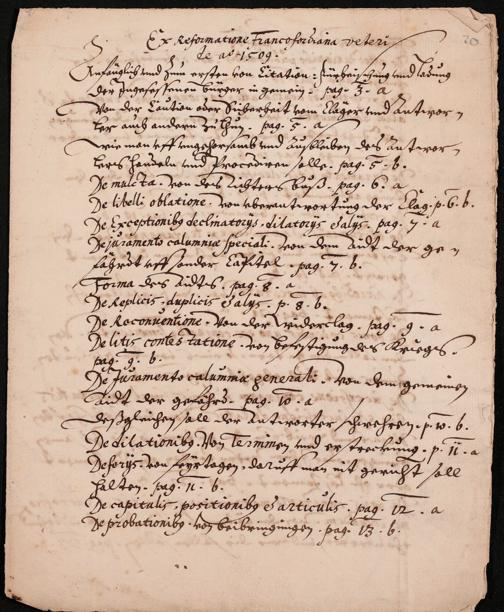 20
Ex Reformatione Francofordiana veteri
de aō 1509.
Anfänglich und zum ersten von Citation: fürheischung und ladung
der Ingesessenen bürger in gemein. pag. 3. a
Von der Caution oder Sicherheit vom Cläger und Antwor-
ter auch andern zu thun. pag. 5. a
wie man uff ungehorsamb und ausbleiben des Antwor-
ters handeln und Procediren solle. pag. 5. b.
De mulcta. von des richters buß. pag. 6. a
De libelli oblatione. von uberantwortung der Clag. p. 6. b.
De Exceptionibq declinatorijs, dilatorijs & alijs. pag. 7. a
De juramento calumniæ speciali. von dem Aidt der ge-
fährdt uff sonder Capitel. pag. 7. b.
Forma des Aidts. pag. 8. a
De Replicis, duplicis & alijs. p. 8. b.
De Reconventione. von der widerclag. pag. 9. a
De litis contestatione. von befestigung des Krieges.
pag. 9. b.
De Juramento calumniæ generali. von dem gemeinen
Aidt der gefährd. pag. 10. a
deßgleichen soll der Antworter schweren. p. 10. b.
De dilationibq. Von Terminen und erstreckung. p. 11. a
De ferijs. von feyrtagen, daruff man nit gericht soll
halten. pag. 11. b.
De capitulis, positionibq & articulis. pag. 12. a
De probationibq. von beibringungen. pag. 13. b.